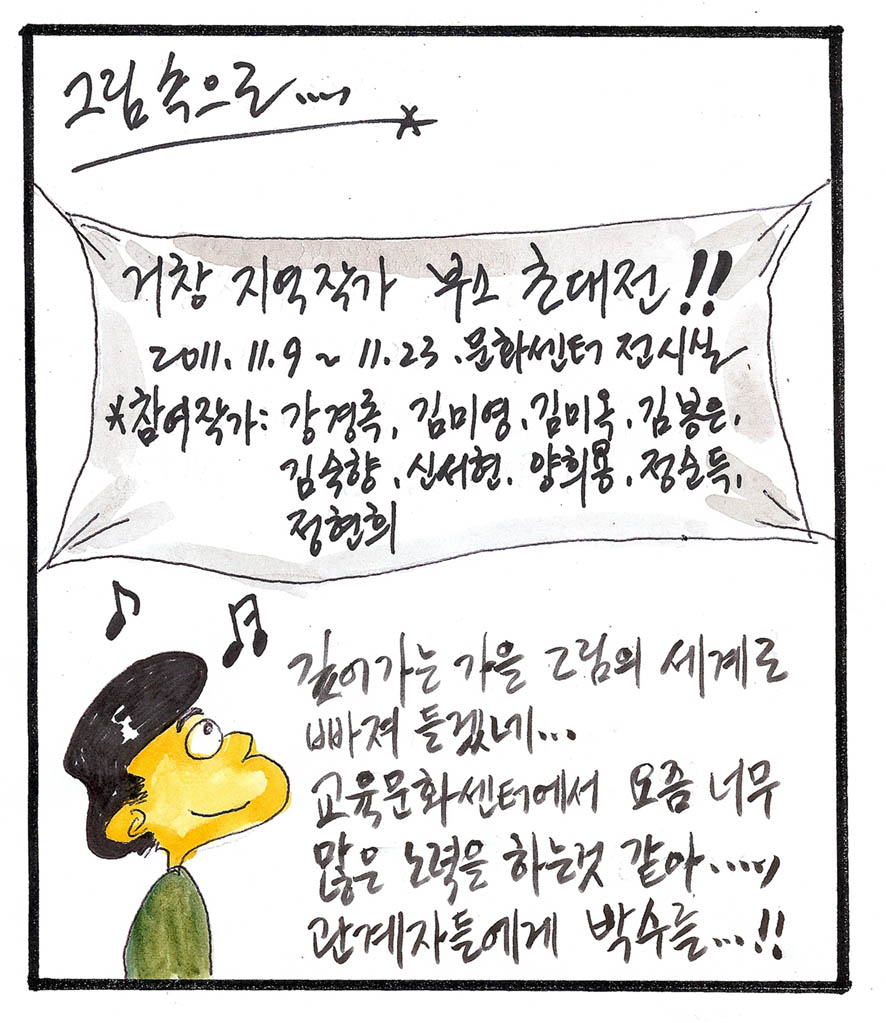 그림속으로....
거창 지역작가 부스 초대전!!
2011. 11. 9 ~ 11. 23. 문화센터 전시실
*참여작가: 강경록, 김미영, 김미옥, 김봉은,
김숙향, 신서현, 양희용, 정순득,
정현희
깊어가는 가을 그림의 세계로
빠져 들겠네...
교육문화센터에서 요즘 너무
많은 노력을 하는것 같아.....
관계자들에게 박수를...!!